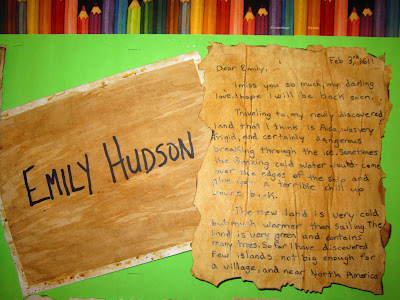 EMILY HUDSON
Feb 3rd, 1611
Dear Emily,
I miss you so much, my darling
love. I hope I will be back soon.
Traveling to my newly discovered
land that I think is Asia, was very
frigid, and certainly dangerous
breaking through the ice. Sometimes
the freezing cold water would come
over the edges of the ship and
give you a terrible chill up
The new land is very cold
but much warmer than sailing. The
land is very green and contains
many trees. So far I have discovered
few islands not big enough for
a village, and near North America